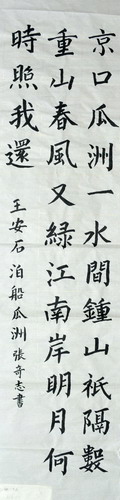 京口瓜洲一水間鍾山祇隔數
重山春風又綠江南岸明月何
時照我還
王安石泊船瓜洲張奇志書